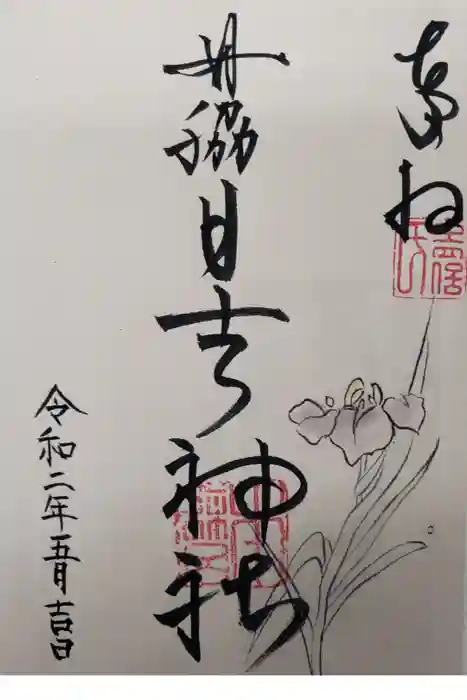 奉拝
日吉神社
令和二年五月吉日